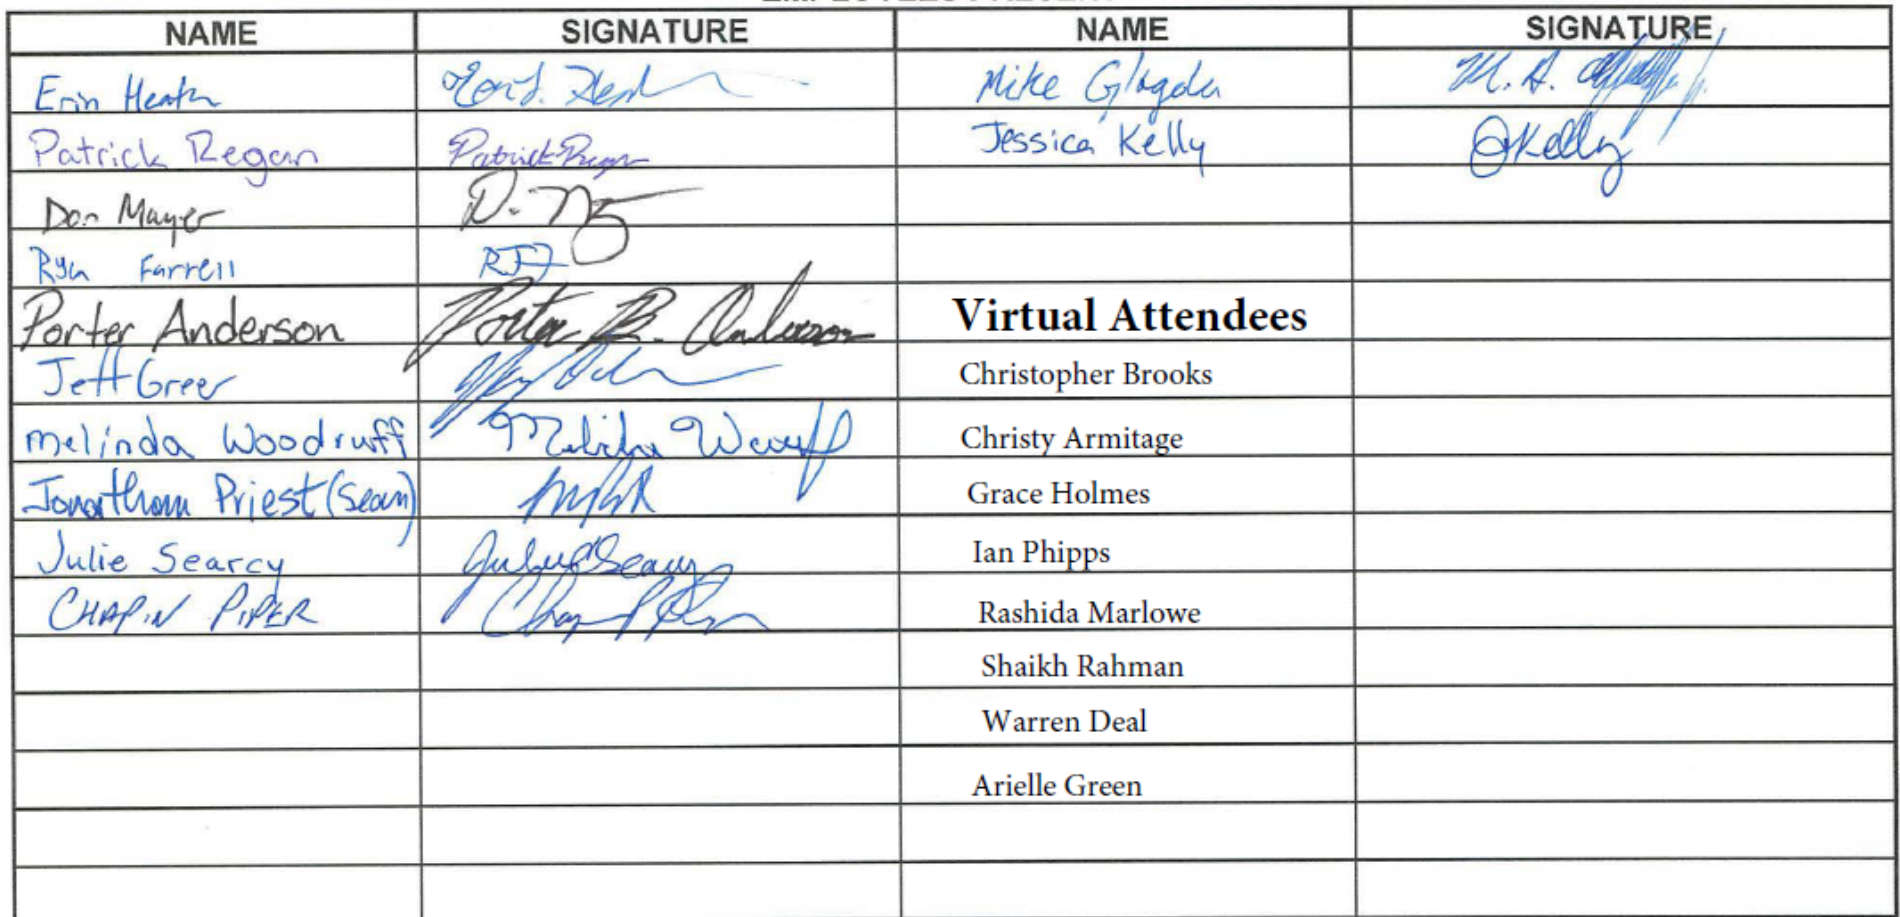 NAME SIGNATURE NAME SIGNATURE
Erin Heath Mike Glagola M. A.
Patrick Regan Patrick Regan Jessica Kelly JKelly
Dan Mayer D.
Ryan Farrell RJF
Porter Anderson Porter B. Anderson Virtual Attendees
Jeff Greer Christopher Brooks
Melinda Woodruff Melinda Woodruff Christy Armitage
Jonathan Priest (Sean) Grace Holmes
Julie Searcy Julie Searcy Ian Phipps
CHAPIN PIPER Rashida Marlowe
Shaikh Rahman
Warren Deal
Arielle Green